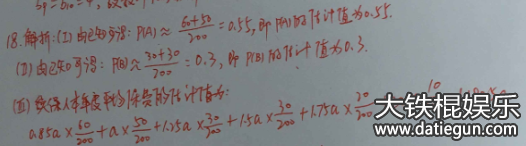 18.解析:(I)由已知得:P(A)≈ 60+50/200 = 0.55,即P(A)的估计值为0.55.
(II)由已知可得:P(B)≈ 30+30/200 = 0.3,即P(B)的估计值为0.3.
(III)续保人本年度平均保费的估计值为:
0.85a×60/200+a×50/200+1.25a×30/200+1.5a×30/200+1.75a×20/200
10
大铁棍娱乐
www.datiegun.com